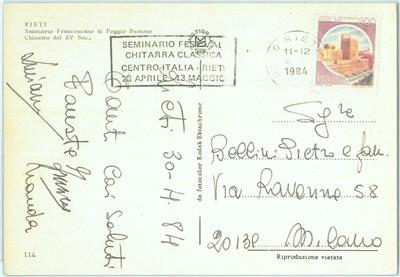 RIETI
Santuario Francescano di Poggio Bustone
Chiostro del XV Sec.
SEMINARIO FESTIVAL
CHITARRA CLASSICA
CENTRO ITALIA - RIETI
20 APRILE - 13 MAGGIO
RIETI
11-12
1984
300
ITALIA
Rieti 30-4-84
Tanti Cari Saluti
Fauste
Luciano
Wanda
da fotocolor Kodak Ektachrome
Sg.re
Bellini Pietro e fam.
Via Ravonne 58
20132 Milano
Riproduzione vietata
114